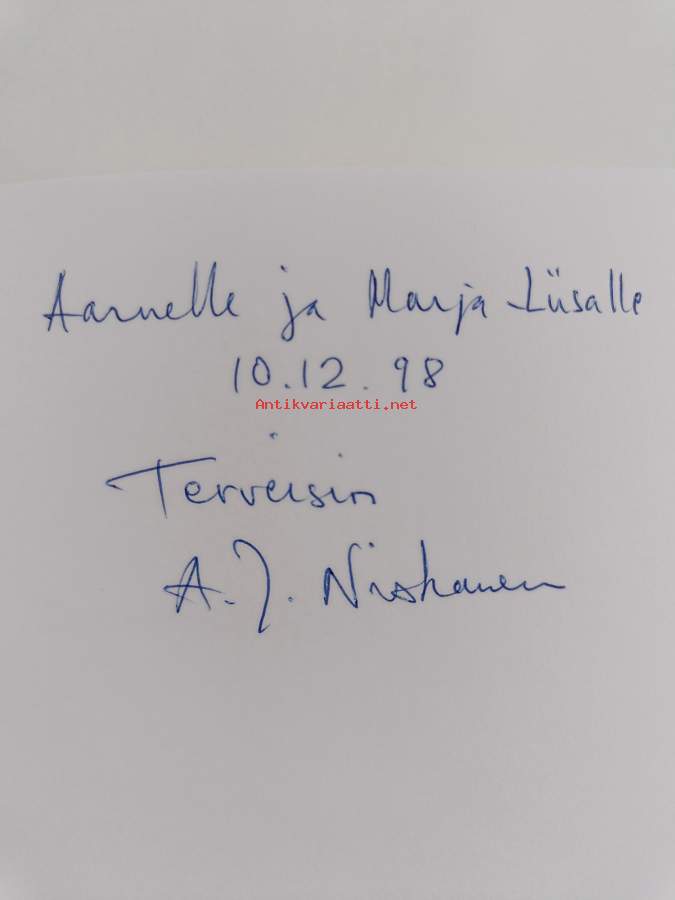 Aarnelle ja Marja-Liisalle
10.12.98
Antikvariaatti.net
Terveisin
A.J. Niskanen